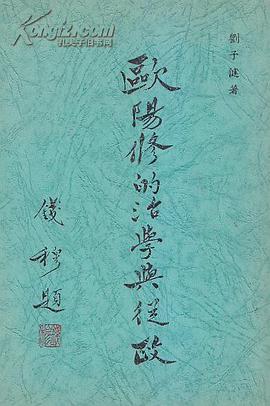 劉子健著
歐陽修的治學與從政
錢穆題
Kongfz.com
孔夫子旧书网